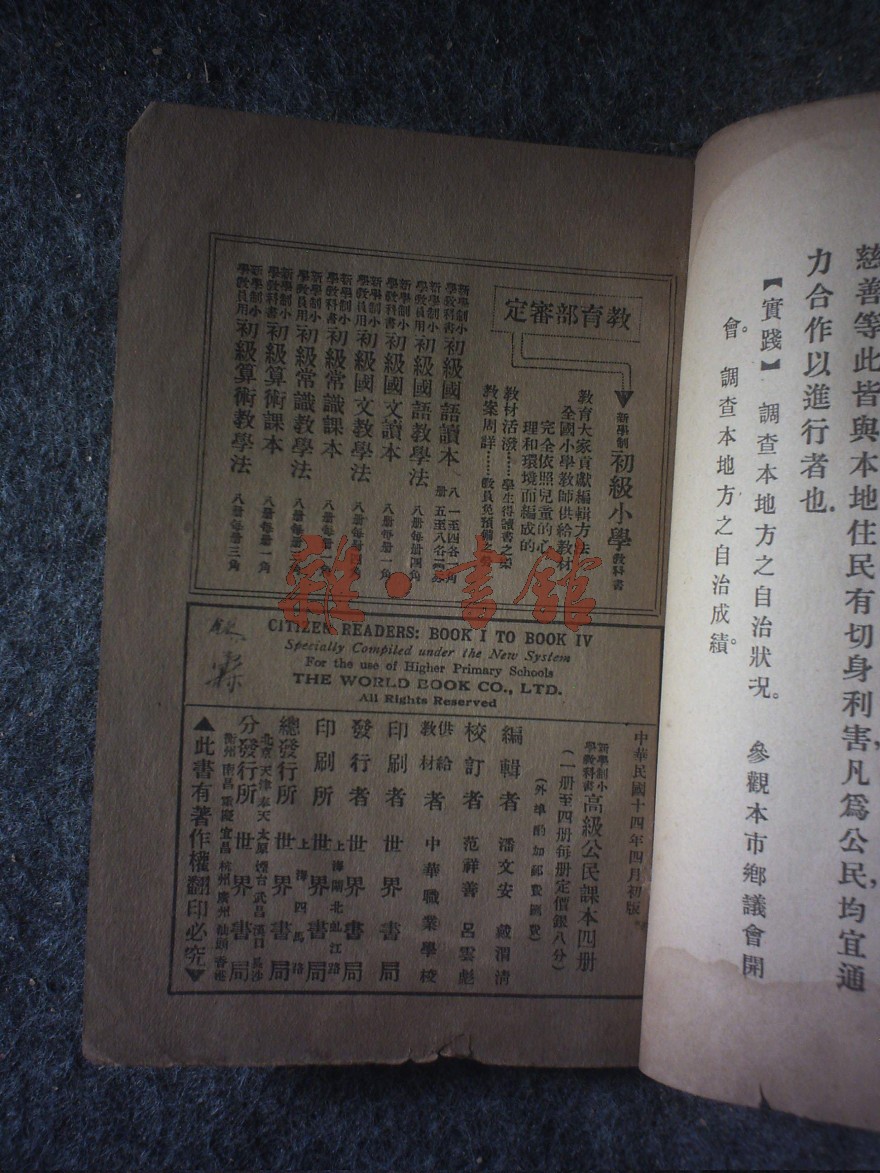 慈善等此皆與本地住民有切身利害凡爲公民均宜通
力合作以進行者也
【實踐】調查本地方之自治狀况。 參觀本市鄉議會開
會。調查本地方之自治成績。
教育部審定
新學制初級小學教科書
教育大家貢獻編輯方法
全國小學教師供給教材
完全依照兒童的心
理和環境而編成的
教材活潑……學生得讀書之樂
教案周詳……教員免預備之勞
新學制小學教科書初級國語讀本 一至四各一角
新學制小學教員用初級國語教學法 八册每册四角
新學制小學教科書初級國文讀本 八册每册一角
新學制小學教員用初級國文教學法 八册每册四角
新學制小學教科書初級常識課本 八册每册一角
新學制小學教員用初級常識教學法
新學制小學教科書初級算術課本 八册每册一角
新學制小學教員用初級算術教學法 八册每册三角
雜·書館
CITIZEN READERS: BOOK I TO BOOK IV
Specially Compiled under the New System
For the use of Higher Primary Schools
THE WORLD BOOK CO., LTD.
All Rights Reserved
中華民國十四年四月初版
新學制小學教科書高級公民課本四册
(一册至四册每册定價銀八分)
(外埠酌加郵費匯費)
編輯者 潘文安 戴渭清
校訂者 范祥善 呂雲彪
供給教材者 中華職業學校
印刷者 世界書局
發行者 世界書局
印刷所 上海閘北虬江路 世界書局
總發行所 上海四馬路 世界書局
分發行所 北京 天津 奉天 太原 煙台 武昌 漢口 長沙 衢州 南昌 重慶 宜昌 杭州 廣州 汕頭 香港 世界書局
▲此書有著作權翻印必究▼